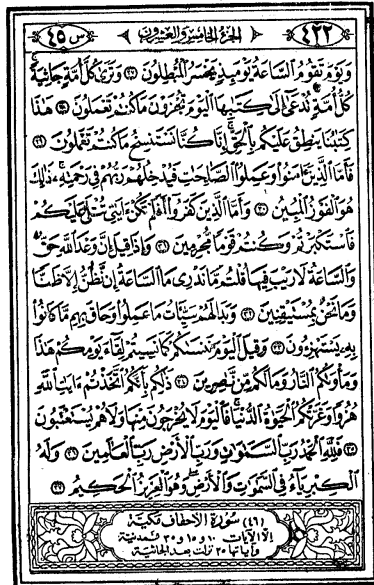 ٤٢٢ الجزء الخامس والعشرون س ٤٥
وَيَوْمَ تَقُومُ السَّاعَةُ يَوْمَئِذٍ يَخْسَرُ الْمُبْطِلُونَ ٢٧ وَتَرَىٰ كُلَّ أُمَّةٍ جَاثِيَةً
كُلُّ أُمَّةٍ تُدْعَىٰ إِلَىٰ كِتَابِهَا الْيَوْمَ تُجْزَوْنَ مَا كُنتُمْ تَعْمَلُونَ ٢٨ هَٰذَا
كِتَابُنَا يَنطِقُ عَلَيْكُم بِالْحَقِّ إِنَّا كُنَّا نَسْتَنسِخُ مَا كُنتُمْ تَعْمَلُونَ ٢٩
فَأَمَّا الَّذِينَ آمَنُوا وَعَمِلُوا الصَّالِحَاتِ فَيُدْخِلُهُمْ رَبُّهُمْ فِي رَحْمَتِهِ ذَٰلِكَ
هُوَ الْفَوْزُ الْمُبِينُ ٣٠ وَأَمَّا الَّذِينَ كَفَرُوا أَفَلَمْ تَكُنْ آيَاتِي تُتْلَىٰ عَلَيْكُمْ
فَاسْتَكْبَرْتُمْ وَكُنتُمْ قَوْمًا مُّجْرِمِينَ ٣١ وَإِذَا قِيلَ إِنَّ وَعْدَ اللَّهِ حَقٌّ
وَالسَّاعَةُ لَا رَيْبَ فِيهَا قُلْتُم مَّا نَدْرِي مَا السَّاعَةُ إِن نَّظُنُّ إِلَّا ظَنًّا
وَمَا نَحْنُ بِمُسْتَيْقِنِينَ ٣٢ وَبَدَا لَهُمْ سَيِّئَاتُ مَا عَمِلُوا وَحَاقَ بِهِم مَّا كَانُوا
بِهِ يَسْتَهْزِئُونَ ٣٣ وَقِيلَ الْيَوْمَ نَنسَاكُمْ كَمَا نَسِيتُمْ لِقَاءَ يَوْمِكُمْ هَٰذَا
وَمَأْوَاكُمُ النَّارُ وَمَا لَكُم مِّن نَّاصِرِينَ ٣٤ ذَٰلِكُم بِأَنَّكُمُ اتَّخَذْتُمْ آيَاتِ اللَّهِ
هُزُوًا وَغَرَّتْكُمُ الْحَيَاةُ الدُّنْيَا فَالْيَوْمَ لَا يُخْرَجُونَ مِنْهَا وَلَا هُمْ يُسْتَعْتَبُونَ
٣٥ فَلِلَّهِ الْحَمْدُ رَبِّ السَّمَاوَاتِ وَرَبِّ الْأَرْضِ رَبِّ الْعَالَمِينَ ٣٦ وَلَهُ
الْكِبْرِيَاءُ فِي السَّمَاوَاتِ وَالْأَرْضِ وَهُوَ الْعَزِيزُ الْحَكِيمُ ٣٧
(٤٦) سُورَة الأحقاف مكية
إلا الآيات ١٠ و ١٥ و ٣٥ فمدنية
وآياتها ٣٥ نزلت بعد الجاثية